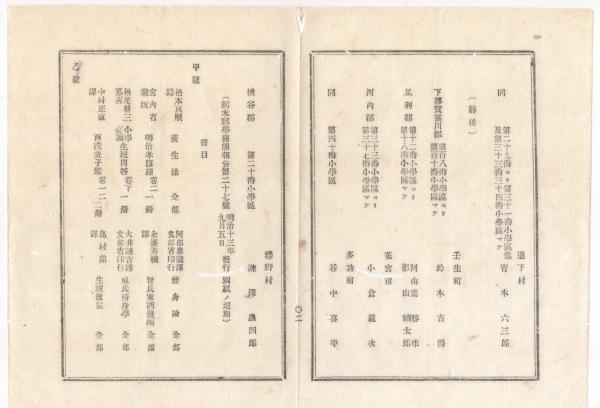 道下村
同 第二十九番ヨリ第三十一番小學區迄及第三十三番三十四番小學區マテ 青木六三郎
(辭任)
壬生町
下都賀寒川郡 第百八番小學區ヨリ第百十番小學區マテ 鈴木吉
足利郡 第十二番小學區ヨリ第十八番小學區マテ 阿由葉 作
影山禎太郎
雀宮宿
河内郡 第三十三番小學區ヨリ第三十七番小學區マテ 小倉範次
多功宿
同 第四十番小學區 谷中喜平
〇二
野村
鹽谷郡 第二十番小學區 瀧澤 四郎
(栃木縣學務課報告第二十七號明治十三年九月五日發行別紙ノ追加)
書目
甲號
松本良順誌 養生法 全部 阿部泰藏譯文部省印行 修身論 全部
宮内省藏版 明治孝節錄 卷二 一冊 永峯秀樹譯 智氏家訓 全部
松尾耕三纂著 小學生理問答 卷下 一冊 大井鎌吉譯文部省印行 威氏修身學 全部
乙號
中村正直譯 西國童子鑑 卷一二 二冊 島村 譯 生理發蒙 全部